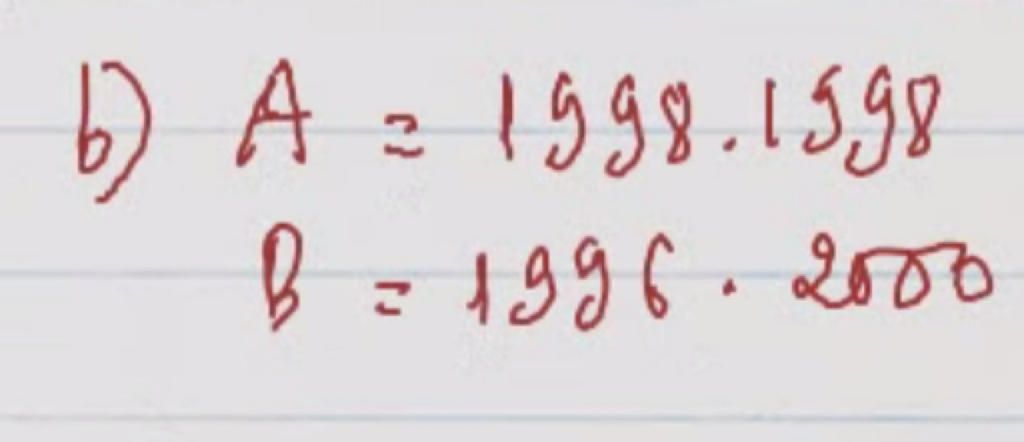 b) A = 1998.1998
B = 1996 . 2000